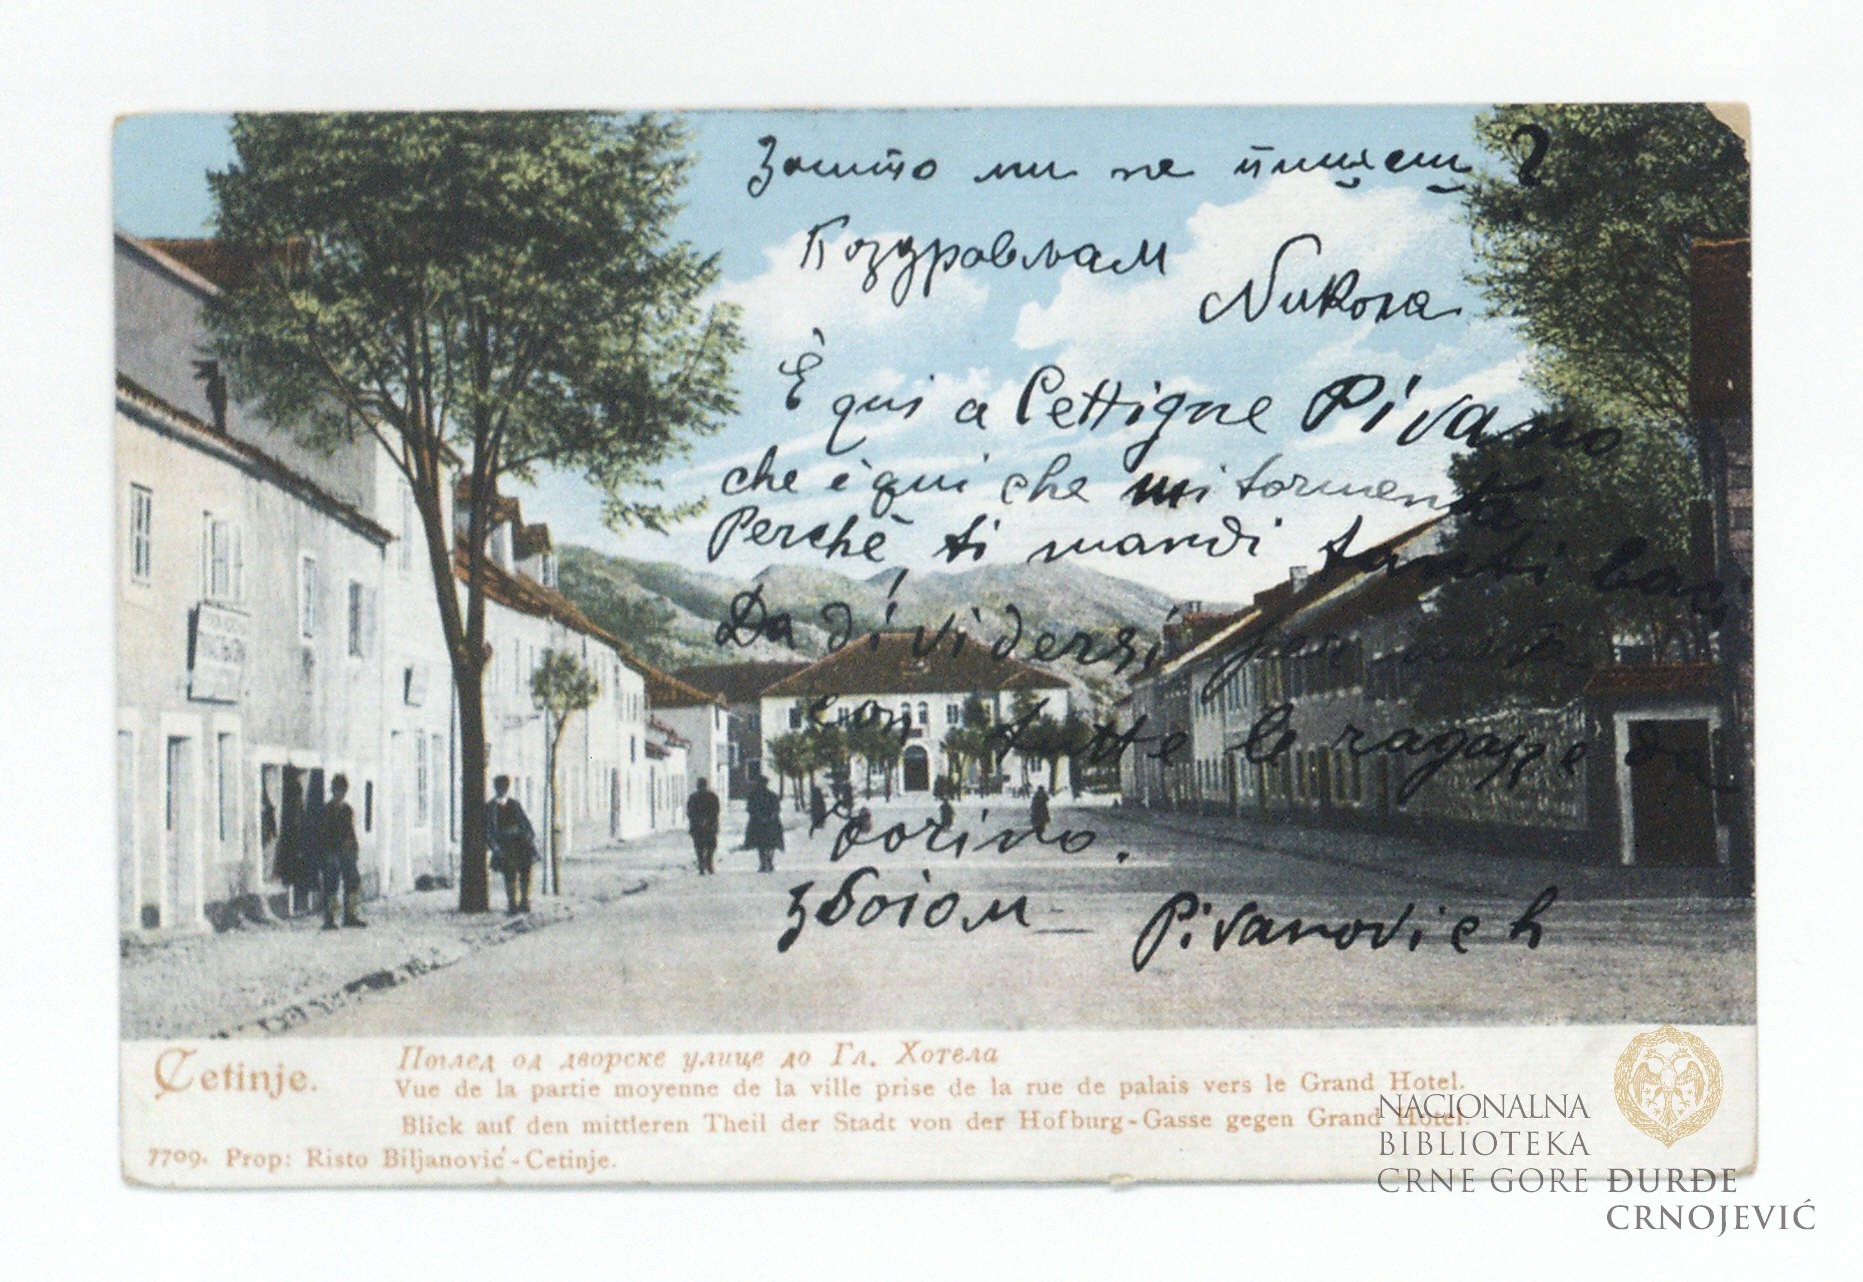 Зашто ми не пишеш?
Поздрављам
Никола
È qui a Cettigne Pivano
che è qui che mi tormenta
Perchè ti mandi tanti baci
Da dí vidersi
con tutte le ragazze da
Torino.
Збогом Pivanovich
Cetinje.
Поглед од дворске улице до Гл. Хотела
Vue de la partie moyenne de la ville prise de la rue de palais vers le Grand Hotel.
Blick auf den mittleren Theil der Stadt von der Hofburg-Gasse gegen Grand Hotel.
7709. Prop: Risto Biljanović-Cetinje.
NACIONALNA
BIBLIOTEKA
CRNE GORE ĐURĐE
CRNOJEVIĆ